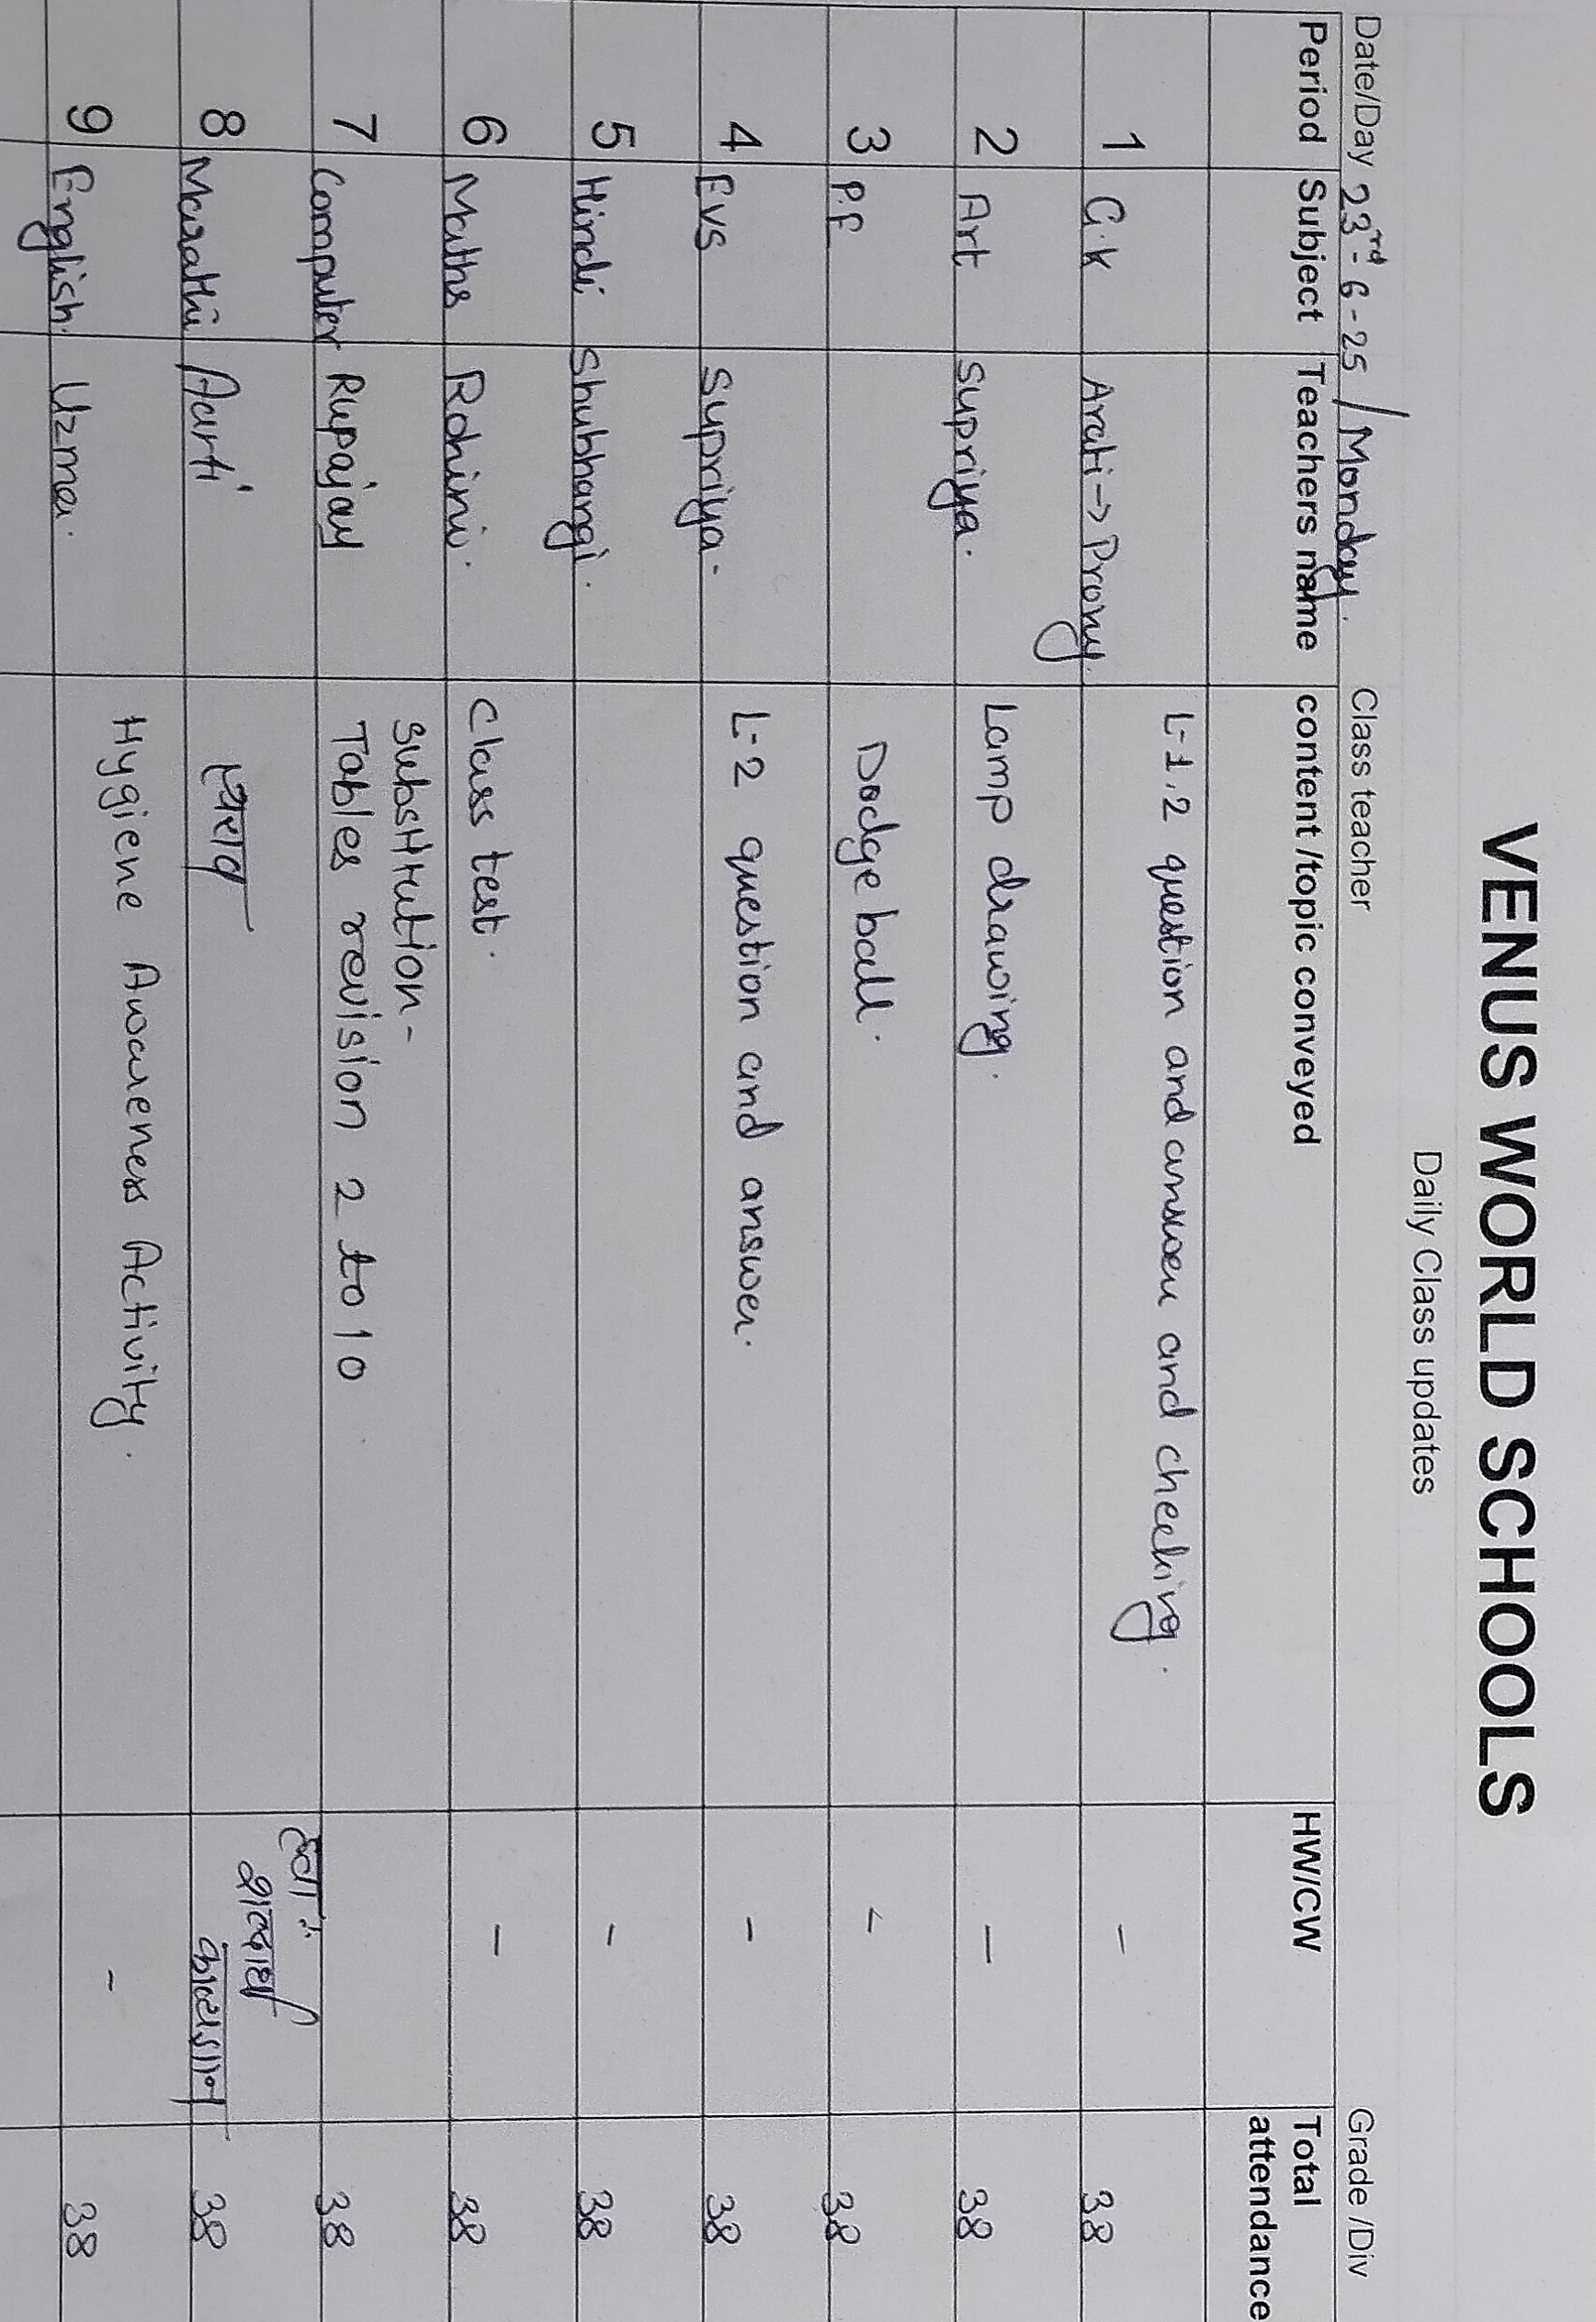 VENUS WORLD SCHOOLS
Daily Class updates
Date/Day 23rd - 6 - 25 / Monday. Class teacher Grade /Div
Period Subject Teachers name content /topic conveyed HW/CW Total attendance
1 G.K Arati → L-1, 2 question and answer and checking. - 38
2 Art Supriya. Lamp drawing. - 38
3 P.E Dodge ball. - 38
4 EVS Supriya. L-2 question and answer. - 38
5 Hindi Shubhangi. - 38
6 Maths Rohini. Class test. - 38
Substitution-
7 Computer Rupajay Tables revision 2 to 10 38
8 Marathi Aarti सराव शब्दार्थ 38
9 English. Uzma. Hygiene Awareness Activity. - 38